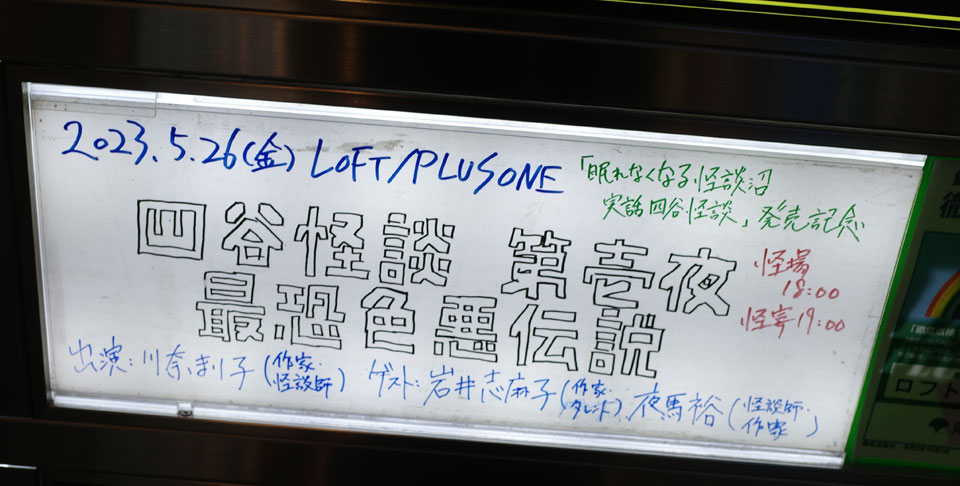 2023.5.26(金) LOFT/PLUSONE
「眠れなくなる怪談沼
実話四谷怪談」発売記念
四谷怪談 第壱夜
最恐色悪伝説
怪場
18:00
怪宴19:00
出演:川奈まり子(作家・
怪談師)
ゲスト:岩井志麻子(作家・
タレント)、夜馬裕(怪談師・
作家)
ロフト